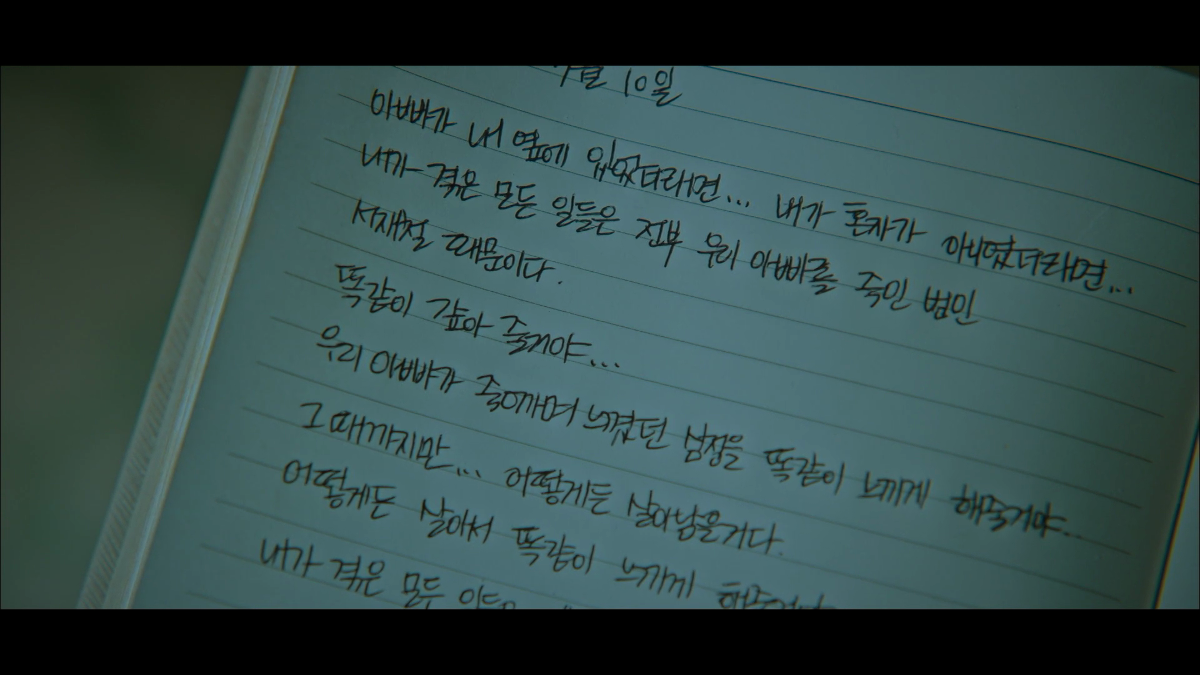 월 10일
아빠가 내 옆에 있었더라면... 내가 혼자가 아니였더라면...
내가 겪은 모든 일들은 전부 우리 아빠를 죽인 범인
서재철 때문이다.
똑같이 갚아 줄거야...
우리 아빠가 죽어가며 느꼈던 심정을 똑같이 느끼게 해줄거야...
그때까지만... 어떻게든 살아남을거다.
어떻게든 살아서 똑같이 느끼게
내가 겪은 모든